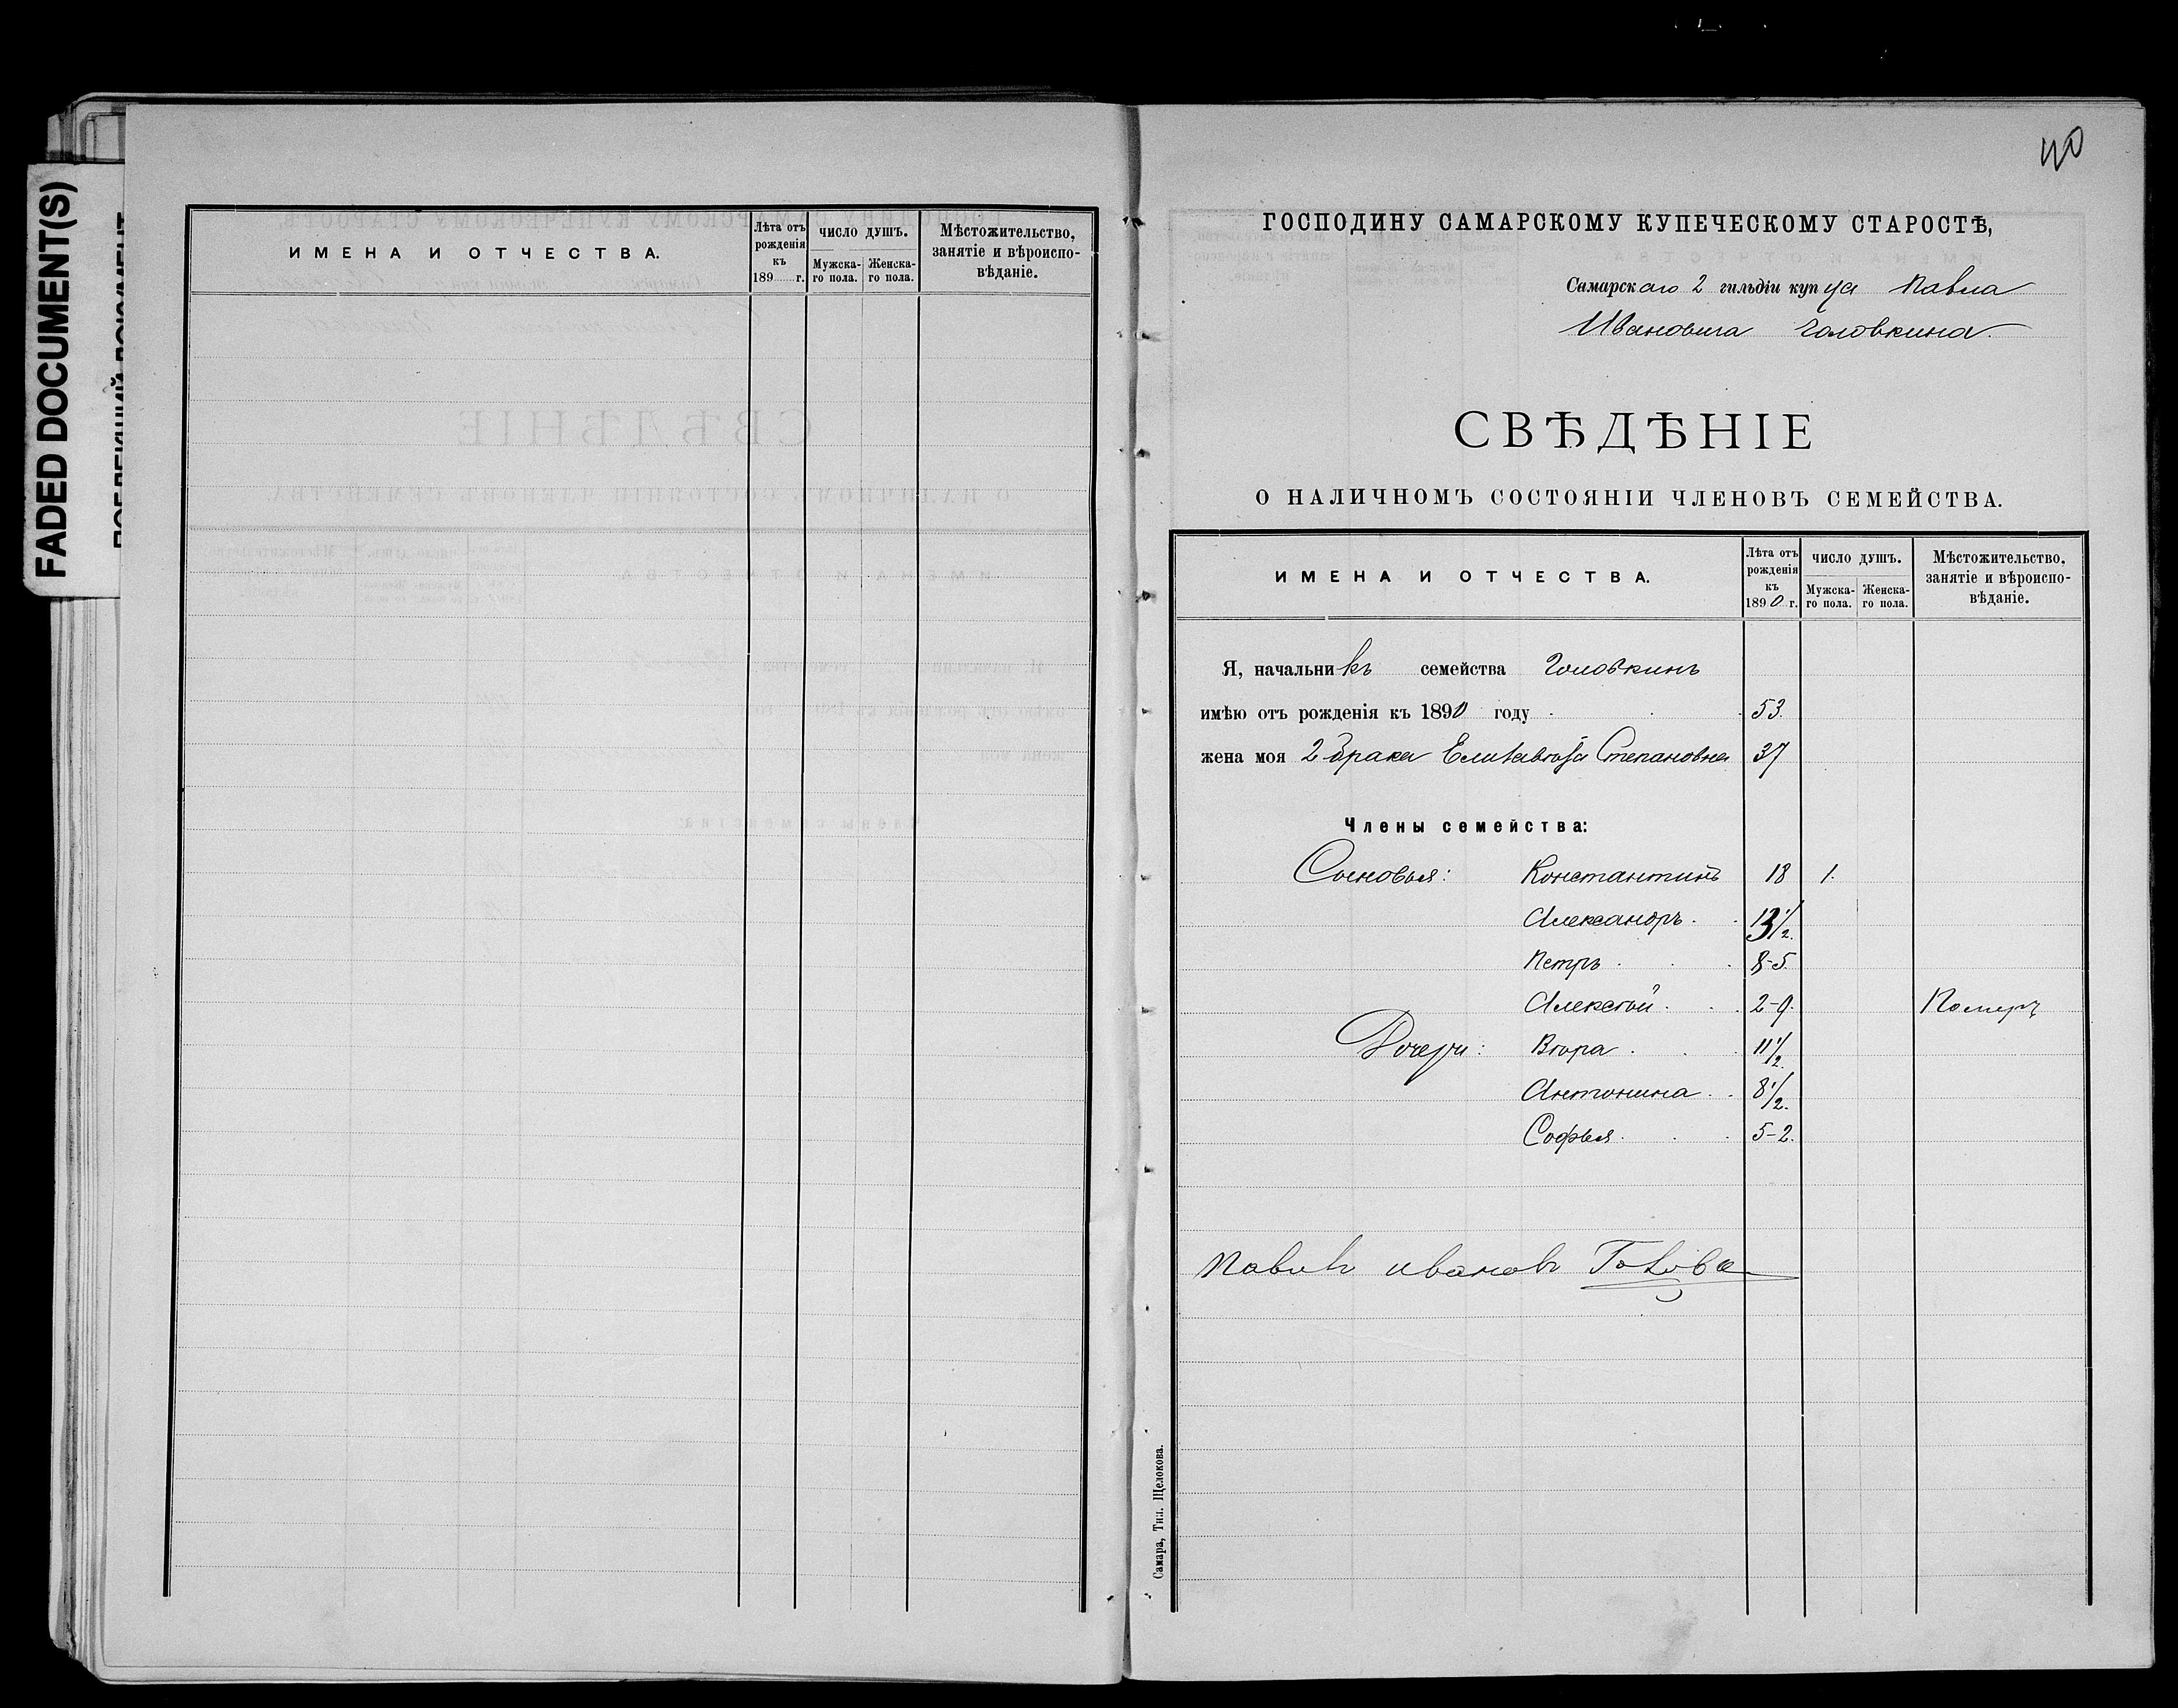 FADED DOCUMENT(S)
ИМЕНА И ОТЧЕСТВА.
Лѣта отъ рожденія къ 189 г.
ЧИСЛО ДУШЪ.
Мужска-го пола.
Женска-го пола.
Мѣстожительство, занятіе и вѣроиспо-вѣданіе.
40
ГОСПОДИНУ САМАРСКОМУ КУПЕЧЕСКОМУ СТАРОСТѢ,
Самарскаго 2 гильдіи купца Павла
Ивановича Головкина.
СВѢДѢНІЕ
О НАЛИЧНОМЪ СОСТОЯНІИ ЧЛЕНОВЪ СЕМЕЙСТВА.
ИМЕНА И ОТЧЕСТВА.
Лѣта отъ рожденія къ 1890 г.
ЧИСЛО ДУШЪ.
Мужска-го пола.
Женска-го пола.
Мѣстожительство, занятіе и вѣроиспо-вѣданіе.
Я, начальникъ семейства Головкинъ
имѣю отъ рожденія къ 1890 году 53.
жена моя 2 брака Елизавѣта Степановна 37
Члены семейства:
Сыновья: Константинъ 18 1.
Александръ 13 1/2.
Петръ 8-5.
Алексѣй 2-9. Померъ
Дочери: Вѣра 11 1/2.
Антонина 8 1/2.
Софья 5-2.
Павилъ ивановъ
Самара, Тип. Щелокова.